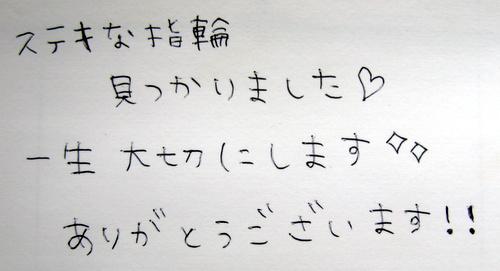 ステキな指輪
見つかりました♡
一生 大切にします✧✧
ありがとうございます!!